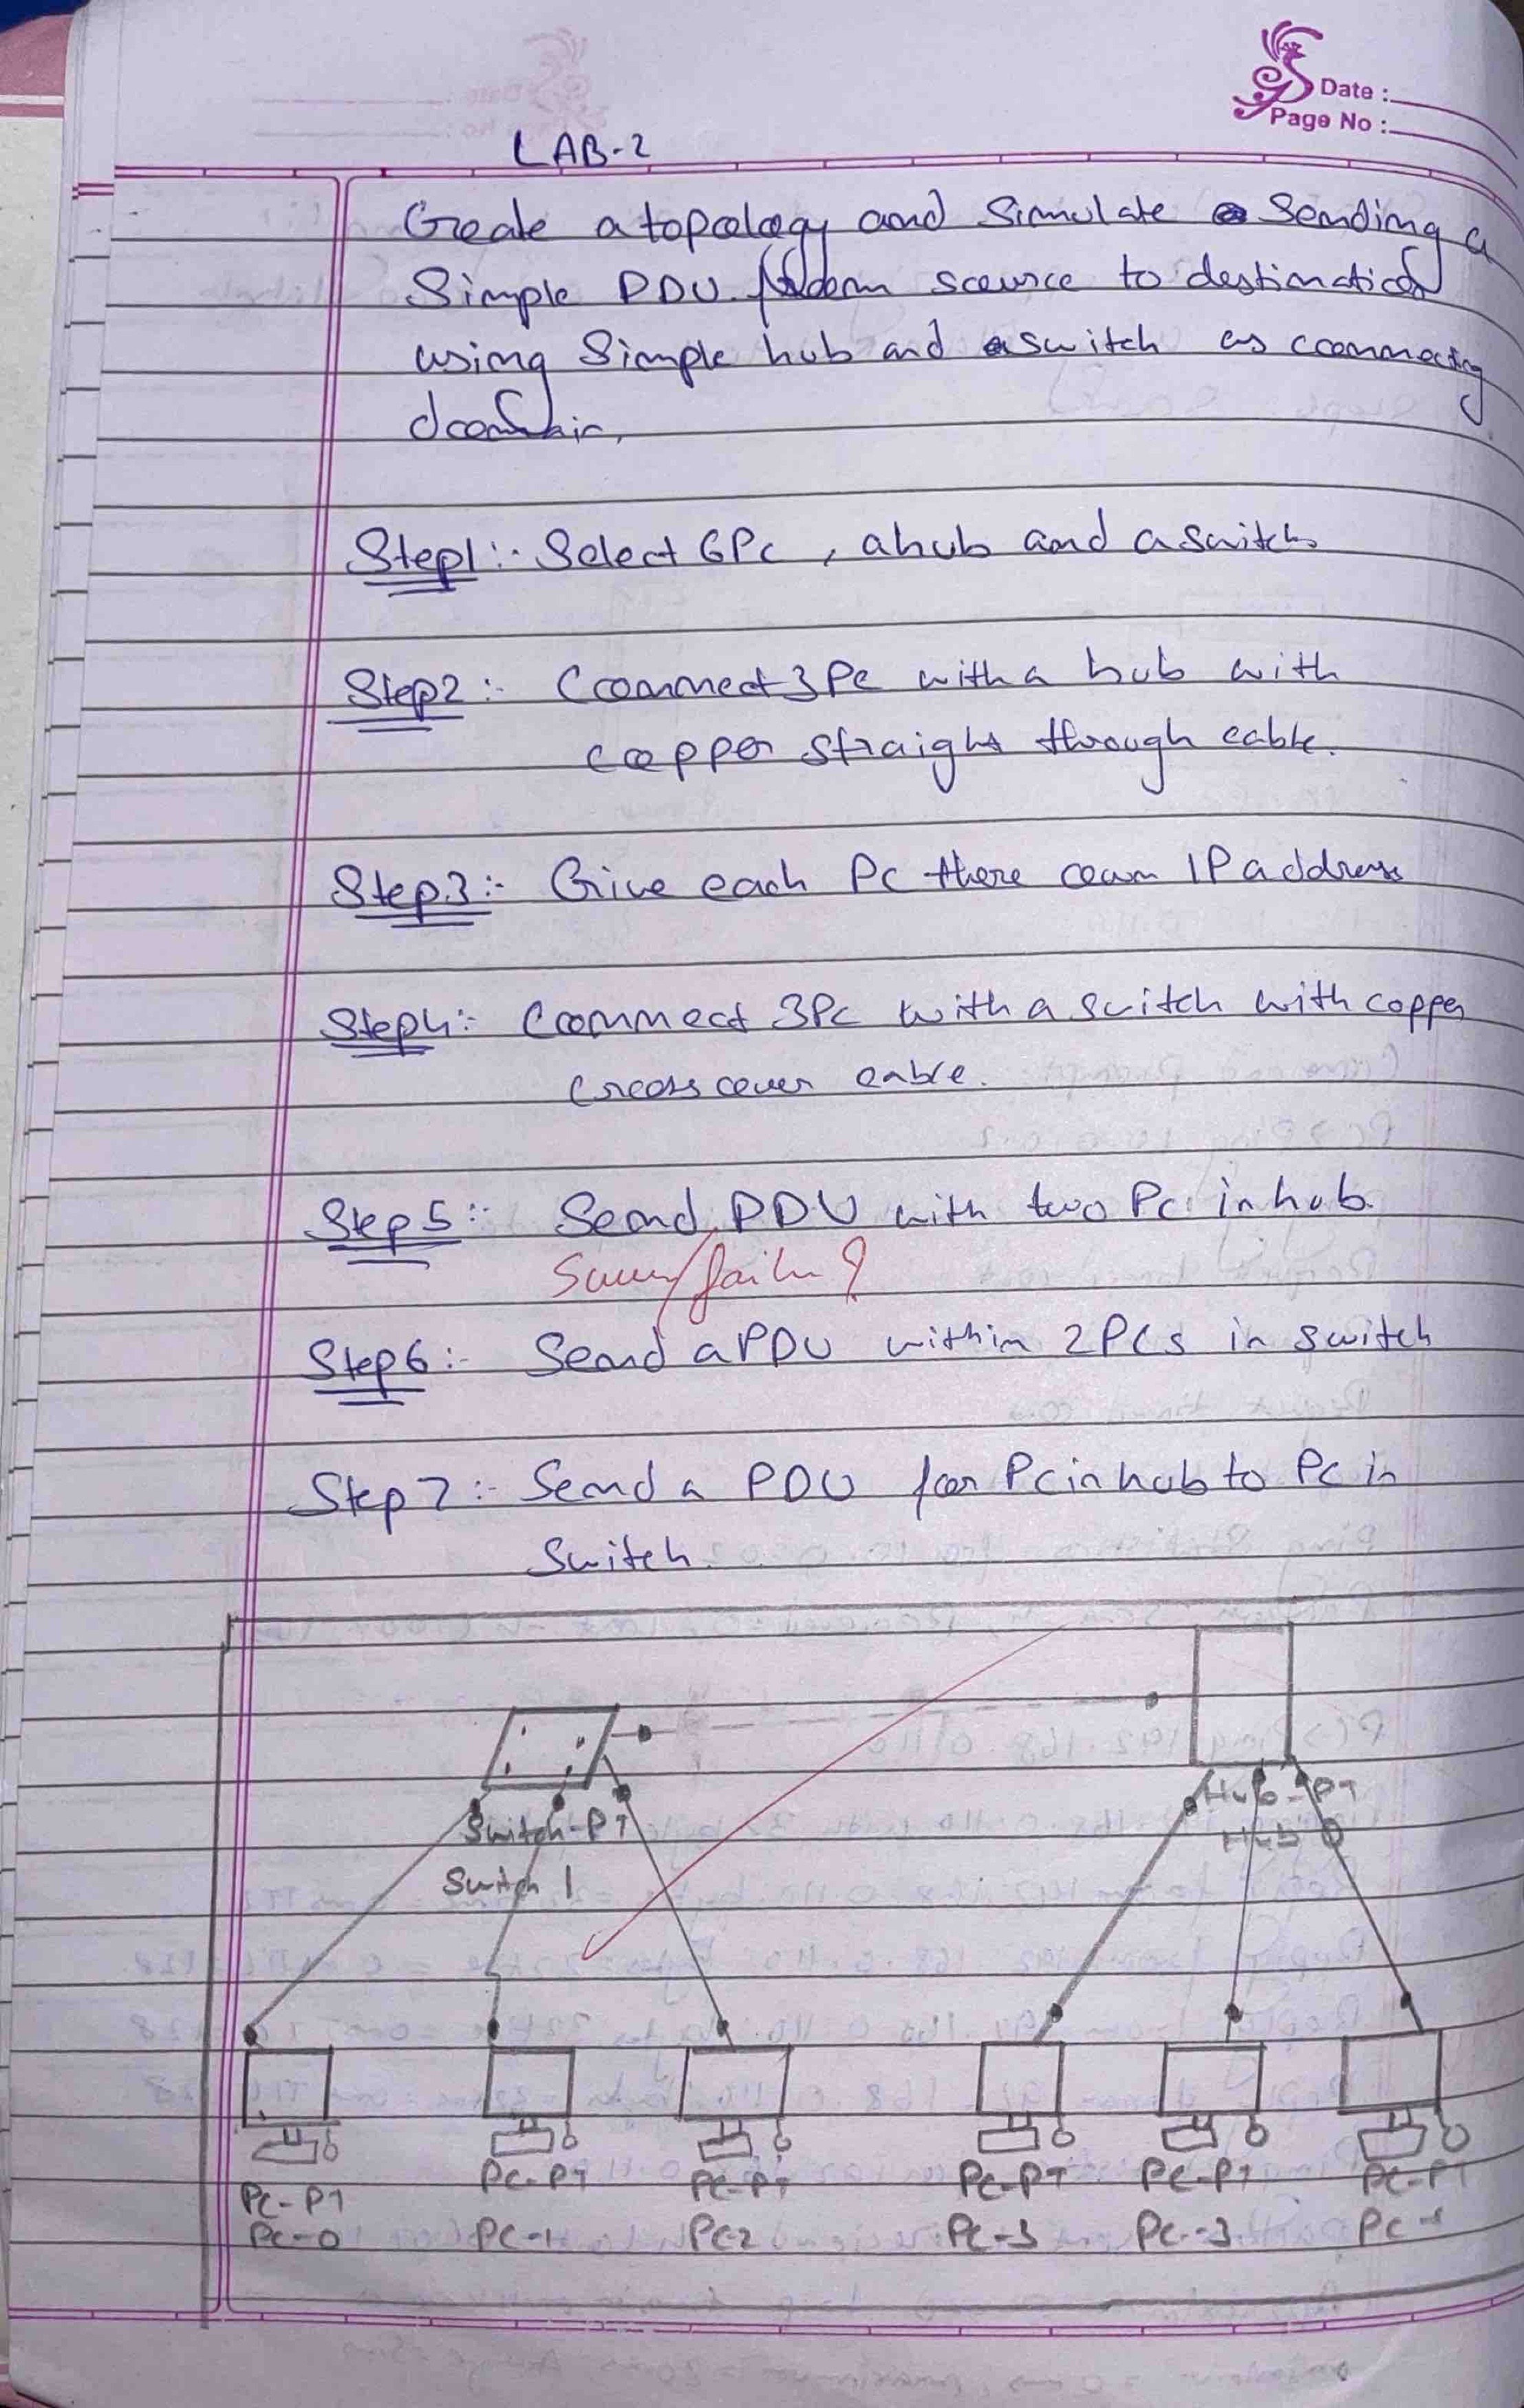 Date :
Page No :
LAB-2
Create a topology and Simulate Sending a
Simple PDU from source to destination
using Simple hub and a switch as connecting
domain.
Step1:- Select 6Pc , a hub and a switch
Step2:- Connect 3 Pc with a hub with
copper straight through cable.
Step3:- Give each Pc there own IP address
Step4:- Connect 3Pc with a switch with copper
cross over cable.
Step5:- Send PDU with two Pc in hub.
Step6:- Send a PDU within 2PCs in switch
Step7:- Send a PDU for Pc in hub to Pc in
Switch.
Switch-PT
Switch 1
Hub-PT
Hub 0
PC-PT PC-PT PC-PT PC-PT PC-PT PC-PT
PC-0 PC-1 PC2 PC-3 PC-3 PC-